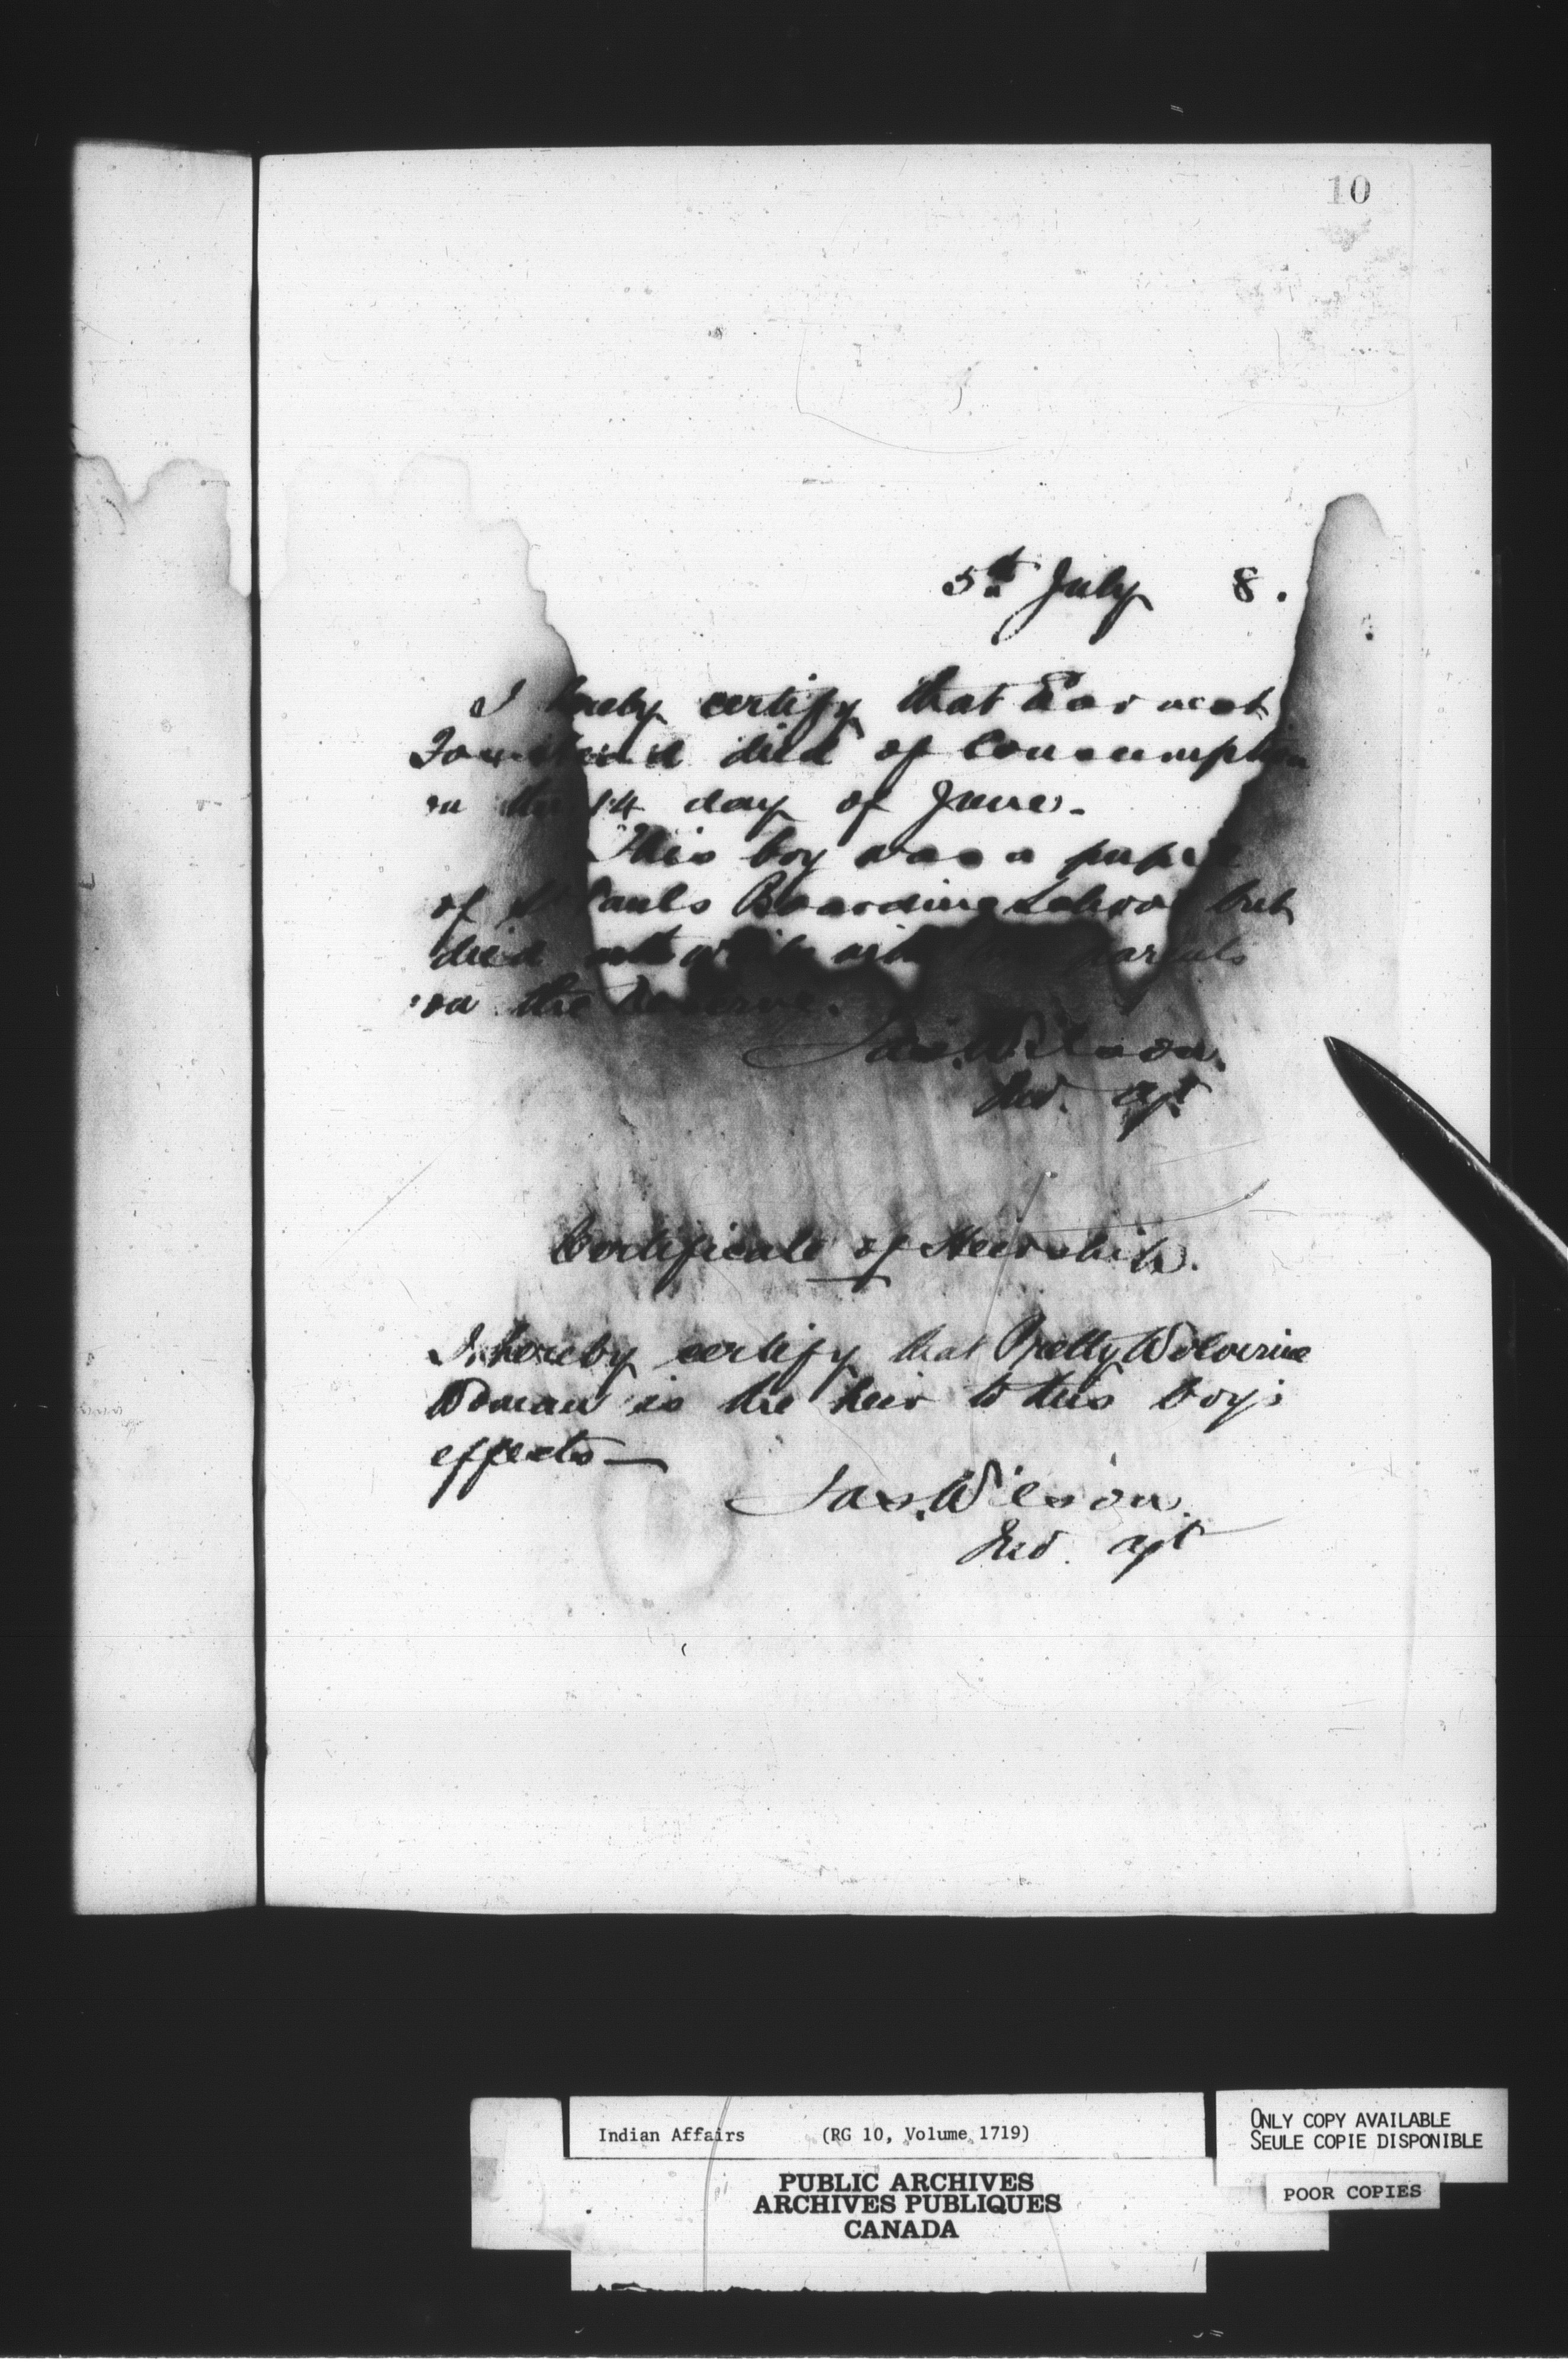 10
5th July 8.
I hereby certify that Earnest
died of Consumption
on the 14 day of June.
This boy was a pupil
of St Pauls Boarding School but
died with parents
on the Reserve.
Jas. Wilson.
Ind. agt
Certificate of Heirship.
I hereby certify that Pretty Wolverine
Woman is the heir to this boy's
effects —
Jas. Wilson.
Ind. agt
Indian Affairs (RG 10, Volume 1719)
PUBLIC ARCHIVES
ARCHIVES PUBLIQUES
CANADA
ONLY COPY AVAILABLE
SEULE COPIE DISPONIBLE
POOR COPIES